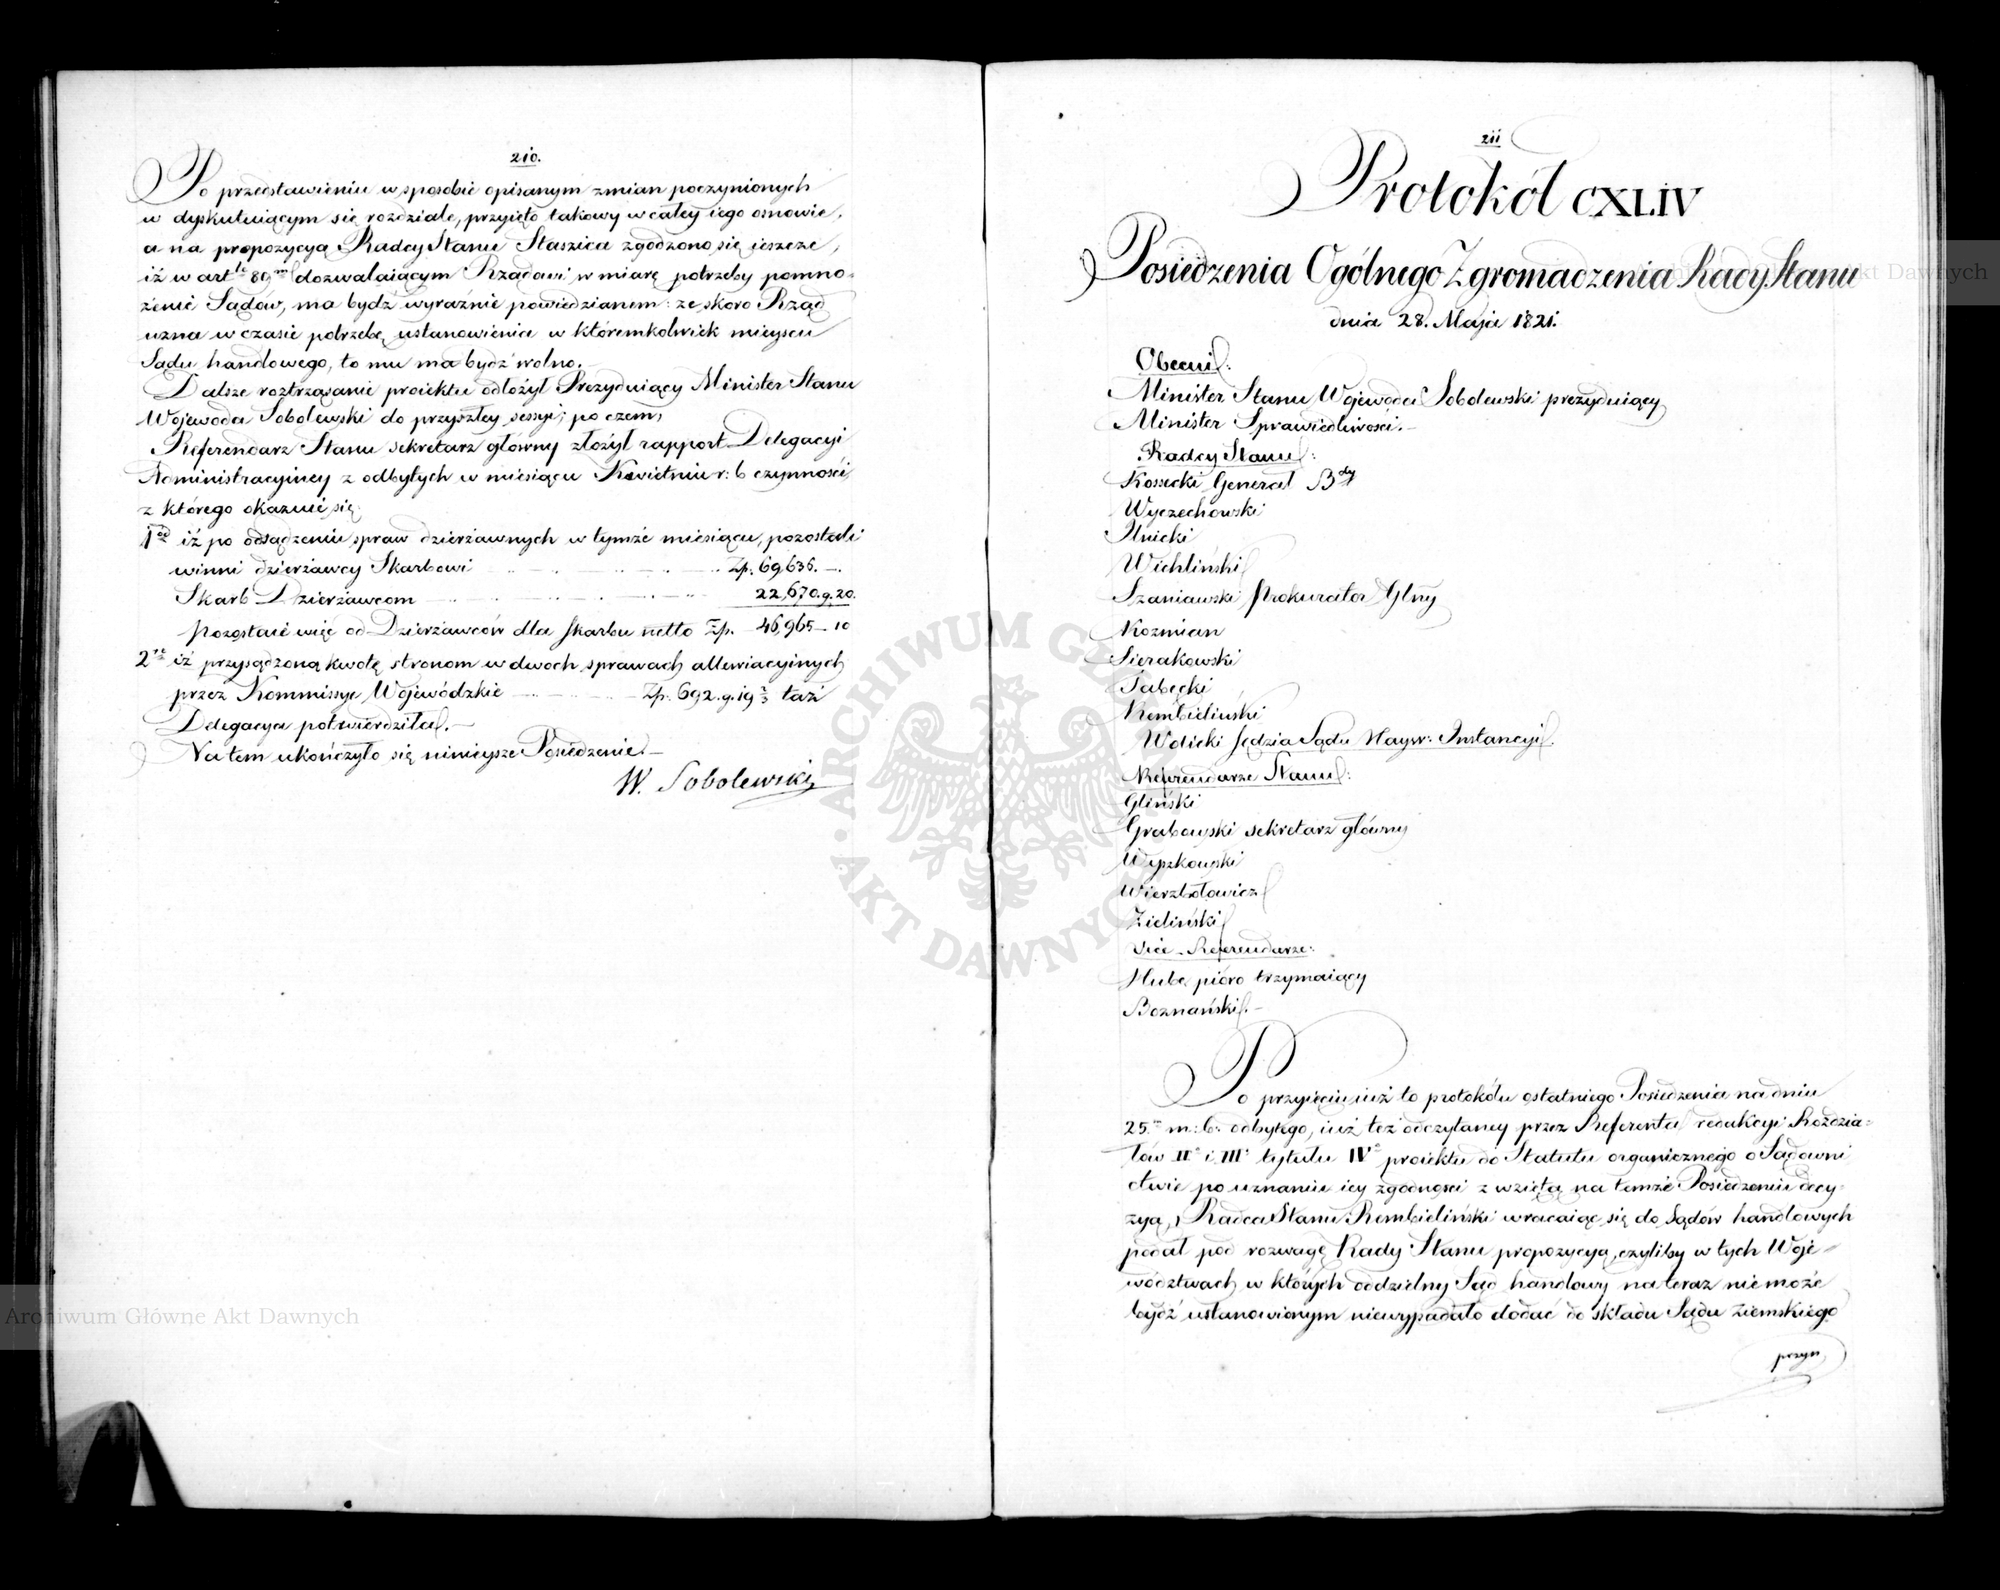 210.
Po przedstawieniu w sposobie opisanym zmian poczynionych
w dyskutuiącym się rozdziale, przyięto takowy w całey iego osnowie,
a na propozycyą Radcy Stanu Staszica zgodzono się ieszcze,
iż w art^le 89^m dozwalaiącym Rządowi w miarę potrzeby pomno-
żenie Sądów, ma bydź wyraźnie powiedzianem: że skoro Rząd
uzna w czasie potrzebę ustanowienia w któremkolwiek mieyscu
Sądu handlowego, to mu ma bydź wolno.
Dalsze roztrząsanie proiektu odłożył Prezyduiący Minister Stanu
Wojewoda Sobolewski do przyszłey sessyi; po czem,
Referendarz Stanu sekretarz główny złożył rapport Delegacyi
Administracyiney z odbytych w miesiącu Kwietniu r: b czynności
z którego okazuie się
1^od iż po osądzeniu spraw dzierżawnych w tymże miesiącu, pozostali
winni dzierżawcy Skarbowi Zp. 69,636. —
Skarb Dzierżawcom 22,670. g. 20.
pozostaie więc od Dzierżawców dla skarbu netto Zp. 46,965 — 10
2^re iż przysądzoną kwotę stronom w dwoch sprawach allewiacyinych
przez Kommissye Wojewódzkie Zp. 692. g. 19 2/3 taż
Delegacya potwierdziła. —
Na tem ukończyło się nineiysze Posiedzenie. —
W. Sobolewski
211
Protokół CXLIV
Posiedzenia Ogólnego Zgromadzenia Rady Stanu
dnia 28. Maja 1821.
Obecni:
Minister Stanu Wojewoda Sobolewski prezyduiący
Minister Sprawiedliwości. —
Radcy Stanu:
Kossecki Generał B^dy
Wyczechowski
Ilnicki
Wichliński
Szaniawski Prokurator Glny
Kozmian
Sierakowski
Tabęcki
Rembieliński
Wolicki Sędzia Sądu Nayw: Instancyi.
Referendarze Stanu:
Gliński
Grabowski sekretarz główny
Wyszkowski
Wierzbołowicz
Zieliński
Vice-Referendarze:
Hube pióro trzymaiący
Boznański. —
Po przyięciu iuż to protokółu ostatniego Posiedzenia na dniu
25^m m: b: odbytego, iuż też odczytaney przez Referenta redakcyi Rozdzia-
łów II^o i III^o tytułu IV^o proiektu do Statutu organicznego o Sądowni
ctwie po uznaniu iey zgodności z wziętą na temże Posiedzeniu decy-
zyą, Radca Stanu Rembieliński wracaiąc się do Sądów handlowych
podał pod rozwagę Rady Stanu propozycyą, czyliby w tych Woje-
wództwach w których oddzielny Sąd handlowy na teraz niemoże
bydź ustanowionym niewypadało dodać do składu Sądu ziemskiego
przyn
ARCHIWUM GŁÓWNE AKT DAWNYCH
Archiwum Główne Akt Dawnych
Archiwum Główne Akt Dawnych